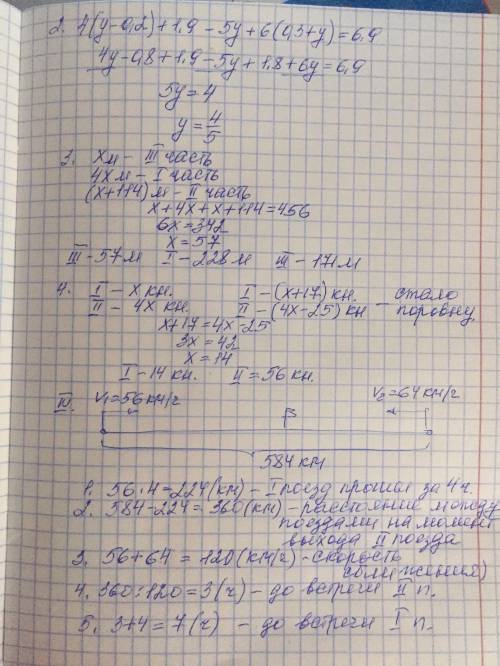 2. 4(y-0,2)+1,9-5y+6(0,3+y)=6,9
4y-0,8+1,9-5y+1,8+6y=6,9
5y=4
y=4/5
3. xм - III часть
4xм - I часть
(x+114)м - II часть
x+4x+x+114=456
6x=342
x=57
III-57м I-228м III-171м
4. I - x кн. I-(x+17) кн. - стало
II - 4x кн. II-(4x-25) кн поровну
x+17=4x-25
3x=42
x=14
I-14 кн. II=56 кн.
IV. V₁=56 км/ч V₂=64 км/ч
584 км
1. 56·4=224(км) - I поезд прошел за 4 ч.
2. 584-224=360(км) - расстояние между
поездами на момент
выхода II поезда
3. 56+64=120(км/ч) - скорость
сближения)
4. 360:120=3(ч) - до встречи II п.
5. 3+4=7(ч) - до встречи I п.